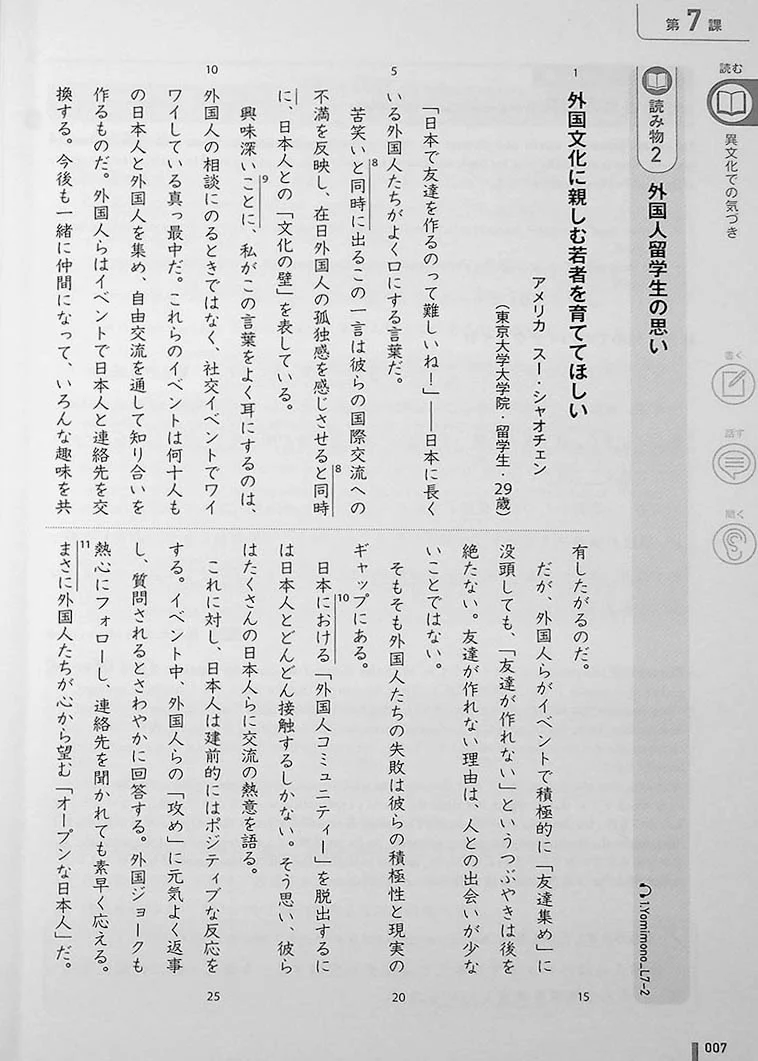 第7課
読む
異文化での気づき
書く
話す
聞く
読み物2 外国人留学生の思い
1.Yomimono_L7-2
1
外国文化に親しむ若者を育ててほしい
アメリカ スー・シャオチェン
（東京大学大学院・留学生・29歳）
「日本で友達を作るのって難しいね！」――日本に長く
5
いる外国人たちがよく口にする言葉だ。
苦笑いと同時に出るこの一言は彼らの国際交流への
8
不満を反映し、在日外国人の孤独感を感じさせると同時
8
に、日本人との「文化の壁」を表している。
興味深いことに、私がこの言葉をよく耳にするのは、
9
外国人の相談にのるときではなく、社交イベントでワイ
10
ワイしている真っ最中だ。これらのイベントは何十人も
の日本人と外国人を集め、自由交流を通して知り合いを
作るものだ。外国人らはイベントで日本人と連絡先を交
換する。今後も一緒に仲間になって、いろんな趣味を共
有したがるのだ。
15
だが、外国人らがイベントで積極的に「友達集め」に
没頭しても、「友達が作れない」というつぶやきは後を
絶たない。友達が作れない理由は、人との出会いが少な
いことではない。
そもそも外国人たちの失敗は彼らの積極性と現実の
20
ギャップにある。
日本における「外国人コミュニティー」を脱出するに
10
は日本人とどんどん接触するしかない。そう思い、彼ら
はたくさんの日本人らに交流の熱意を語る。
これに対し、日本人は建前的にはポジティブな反応を
25
する。イベント中、外国人らの「攻め」に元気よく返事
し、質問されるとさわやかに回答する。外国ジョークも
熱心にフォローし、連絡先を聞かれても素早く応える。
まさに外国人たちが心から望む「オープンな日本人」だ。
11
007